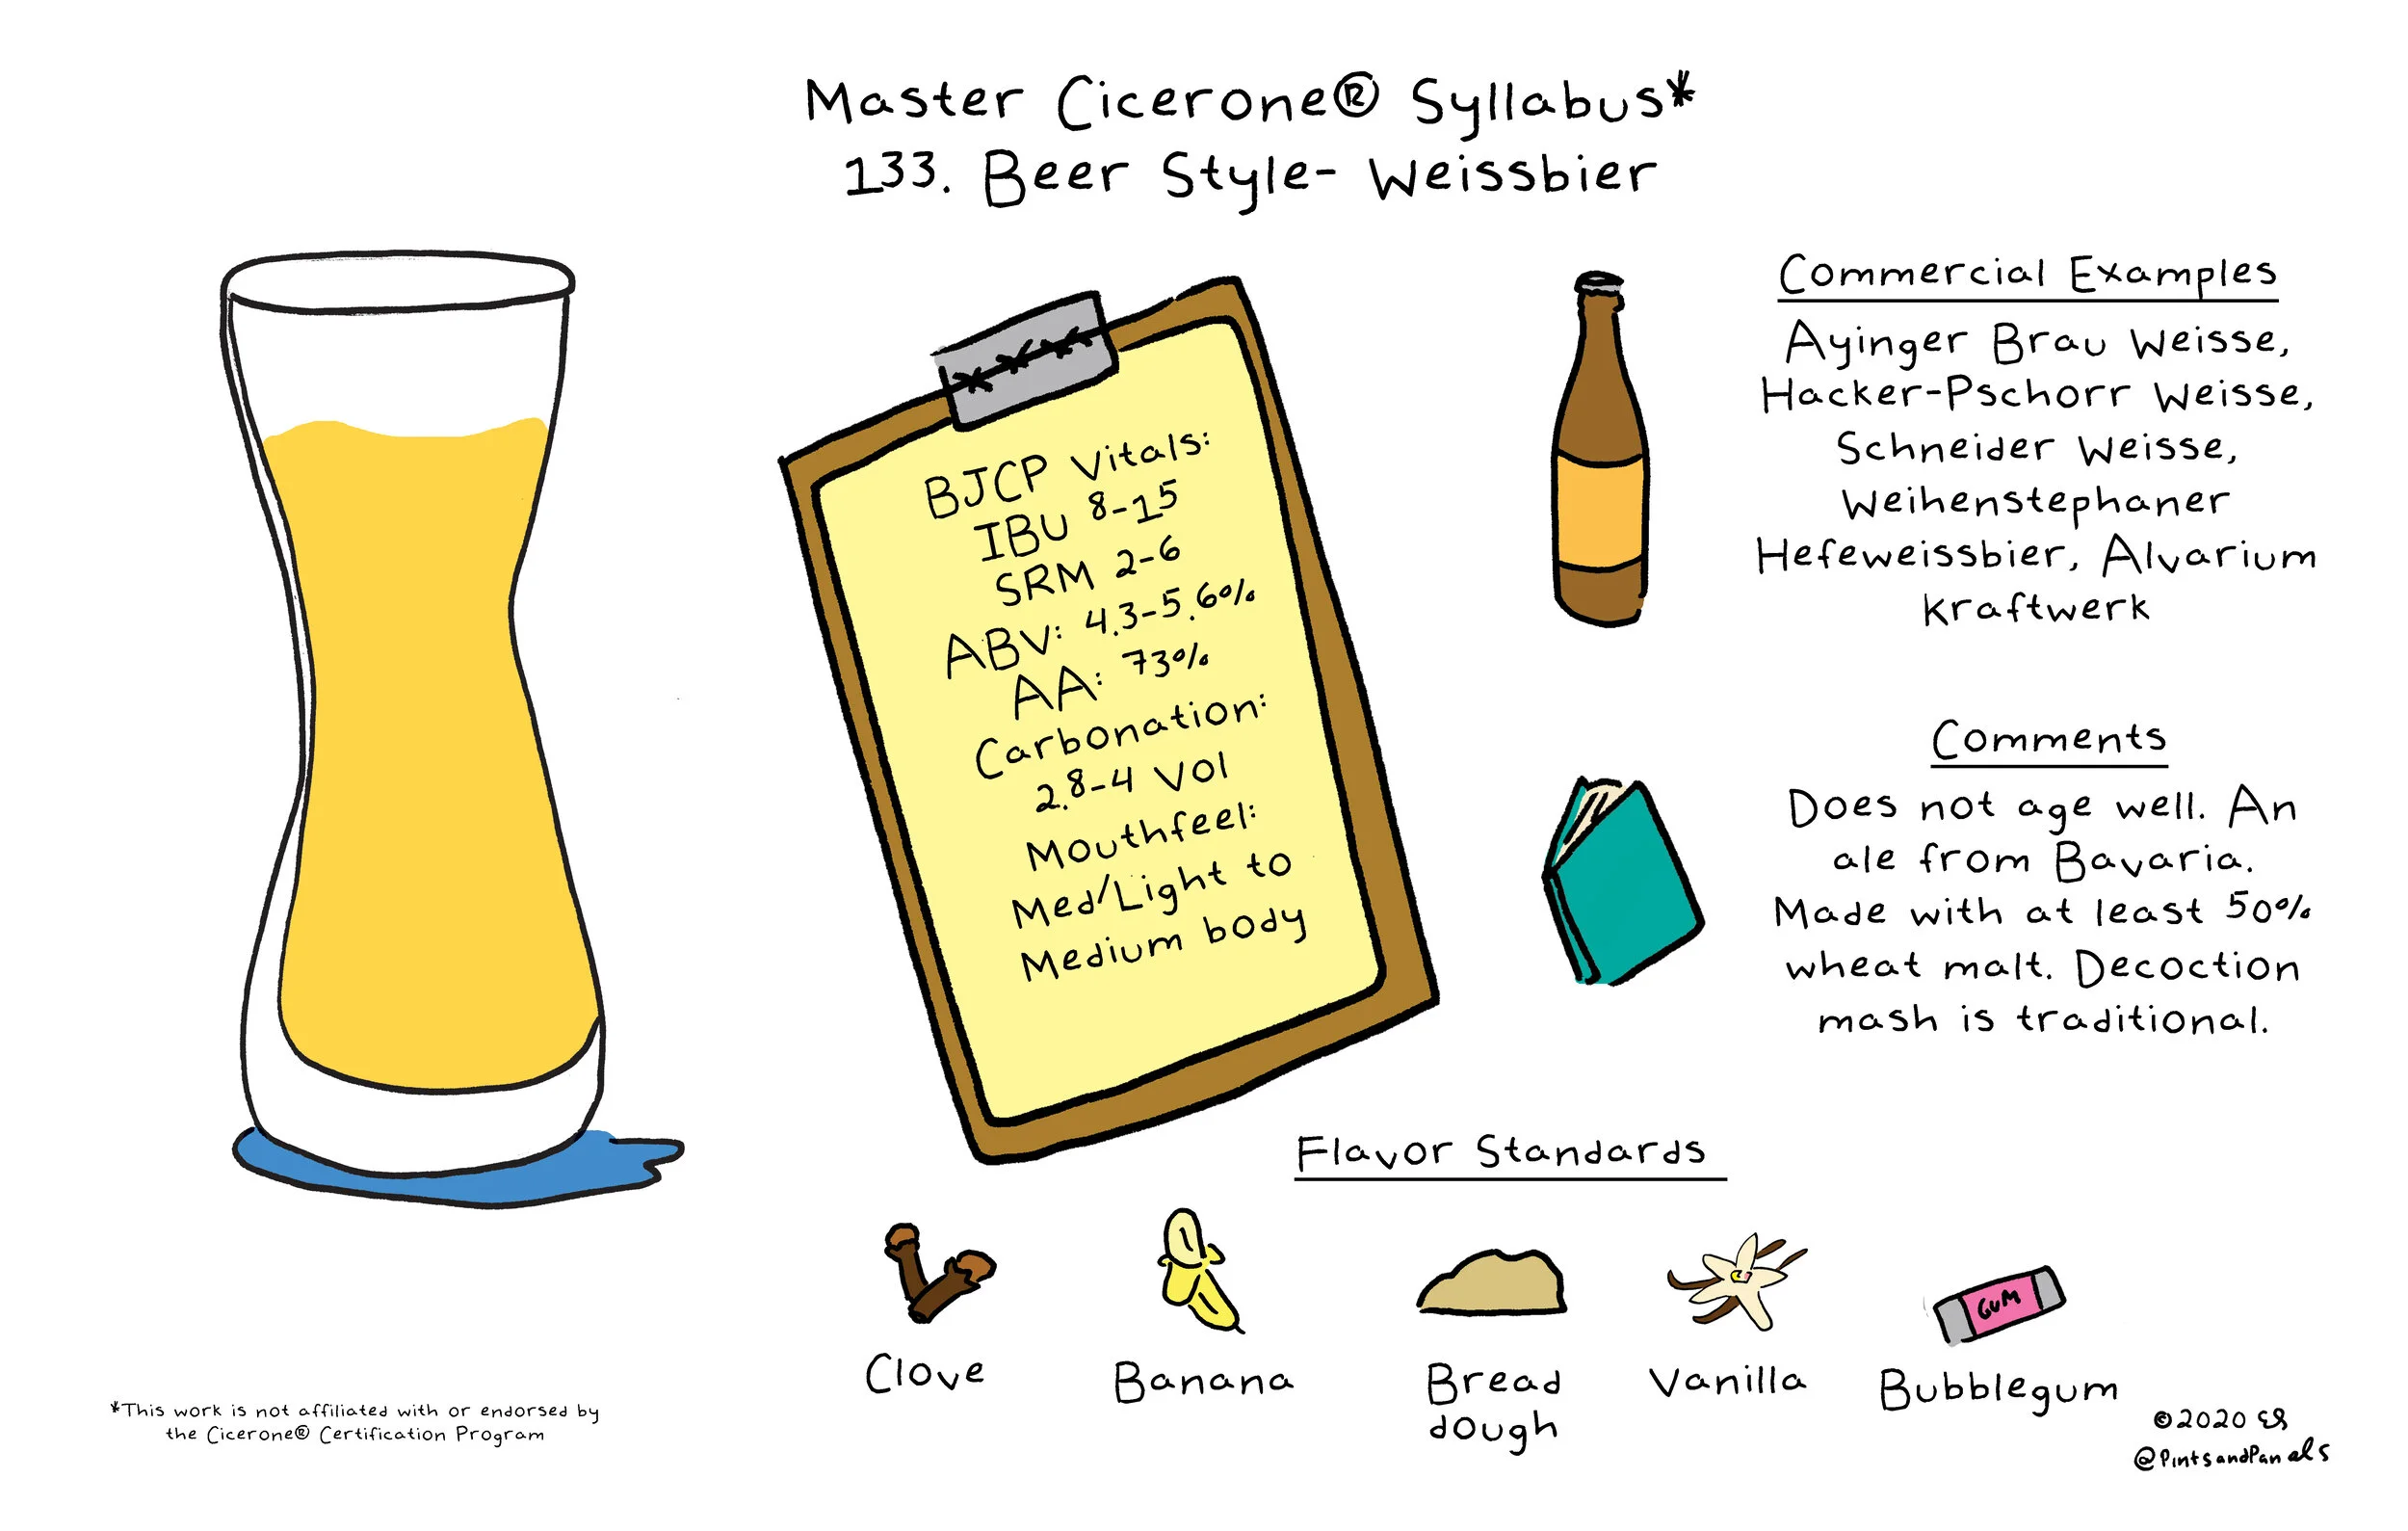 Master Cicerone® Syllabus*
133. Beer Style- Weissbier
BJCP Vitals:
IBU 8-15
SRM 2-6
ABV: 4.3-5.6%
AA: 73%
Carbonation:
2.8-4 Vol
Mouthfeel:
Med/Light to
Medium body
Commercial Examples
Ayinger Brau Weisse,
Hacker-Pschorr Weisse,
Schneider Weisse,
Weihenstephaner
Hefeweissbier, Alvarium
Kraftwerk
Comments
Does not age well. An
ale from Bavaria.
Made with at least 50%
wheat malt. Decoction
mash is traditional.
Flavor Standards
GUM
Clove
Banana
Bread
dough
Vanilla
Bubblegum
*This work is not affiliated with or endorsed by
the Cicerone® Certification Program
©2020 ES
@PintsandPanels